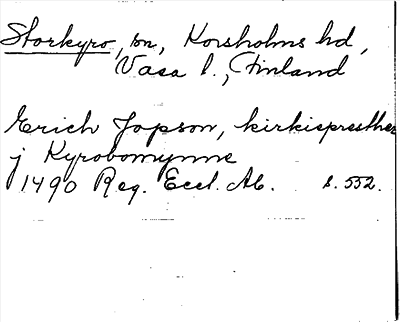 Storkyro, sn, Korsholms hd,
Vasa l., Finland
Erich Jopson, kirkispresther
j Kyrobomynne
1490 Reg. Eccl. Ab. s. 552.